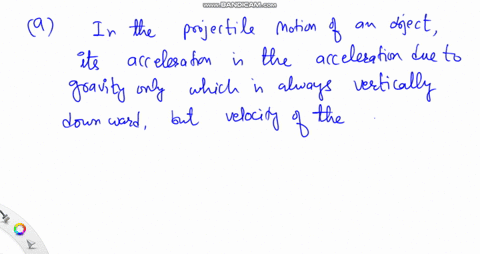 www.BANDICAM.com
(a) In the projectile motion of an object,
its acceleration is the acceleration due to
gravity only which is always vertically
down ward, but velocity of the